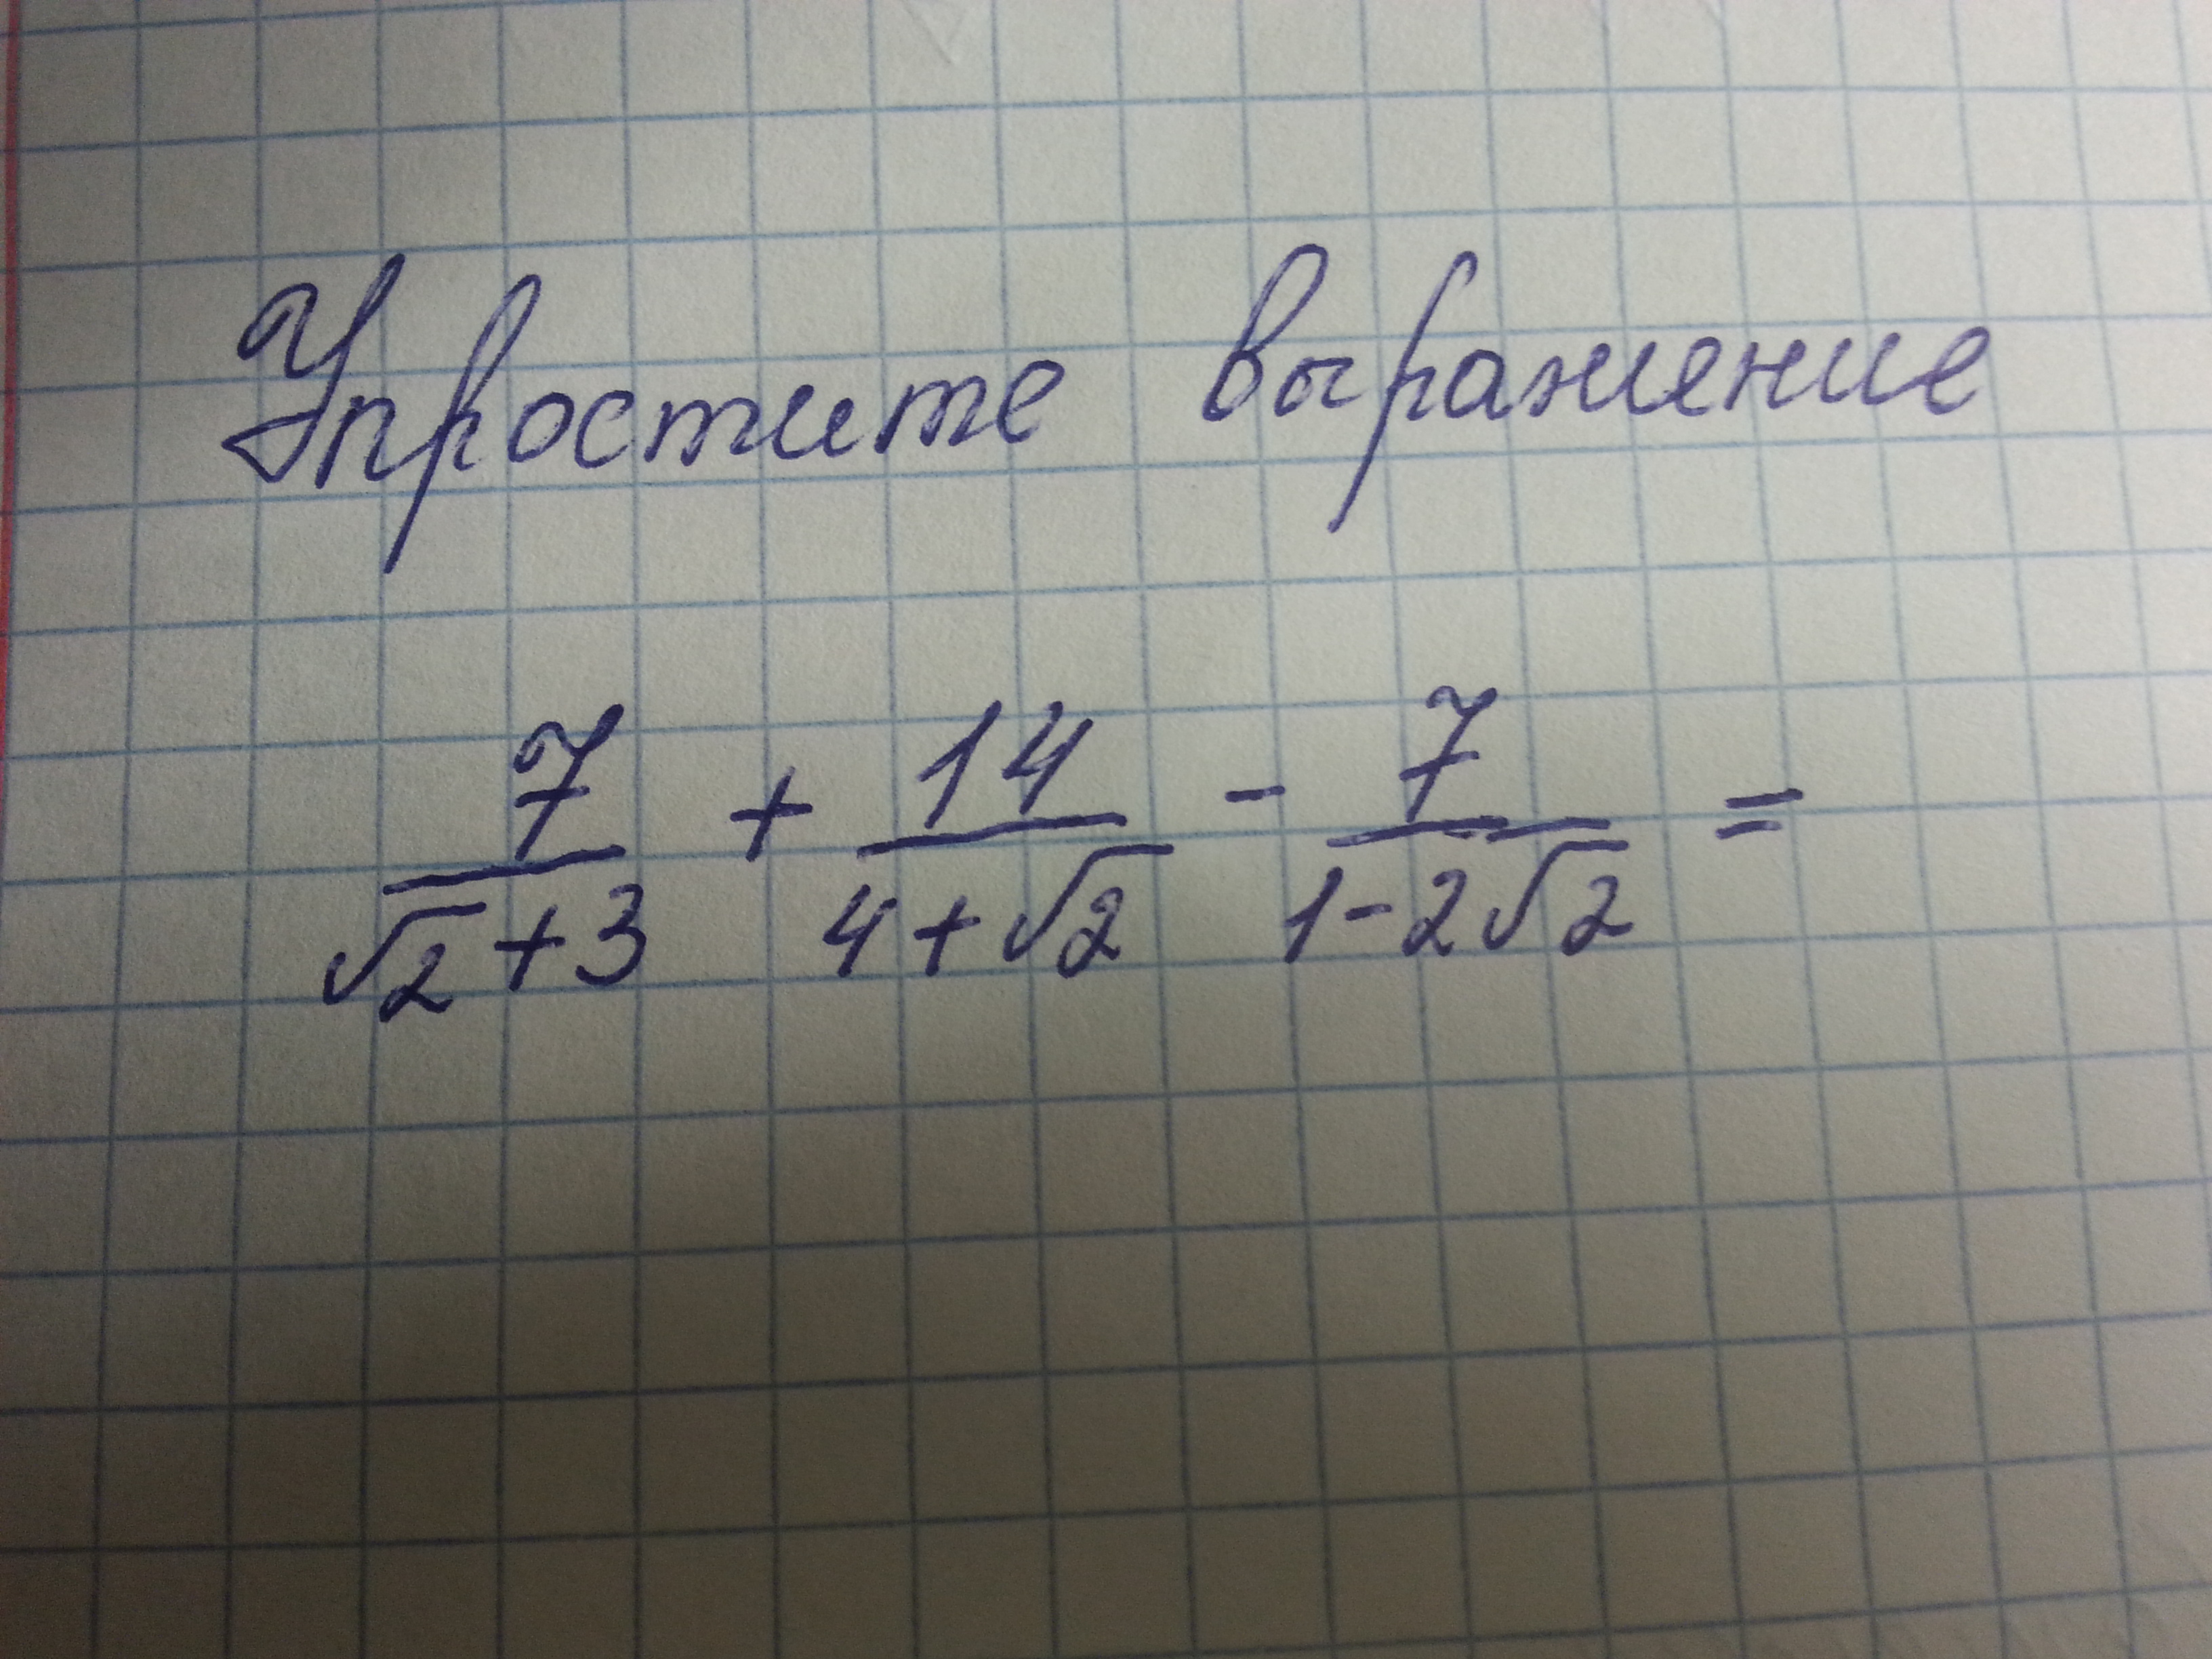 Упростите выражение
7/(√2+3) + 14/(4+√2) - 7/(1-2√2) =